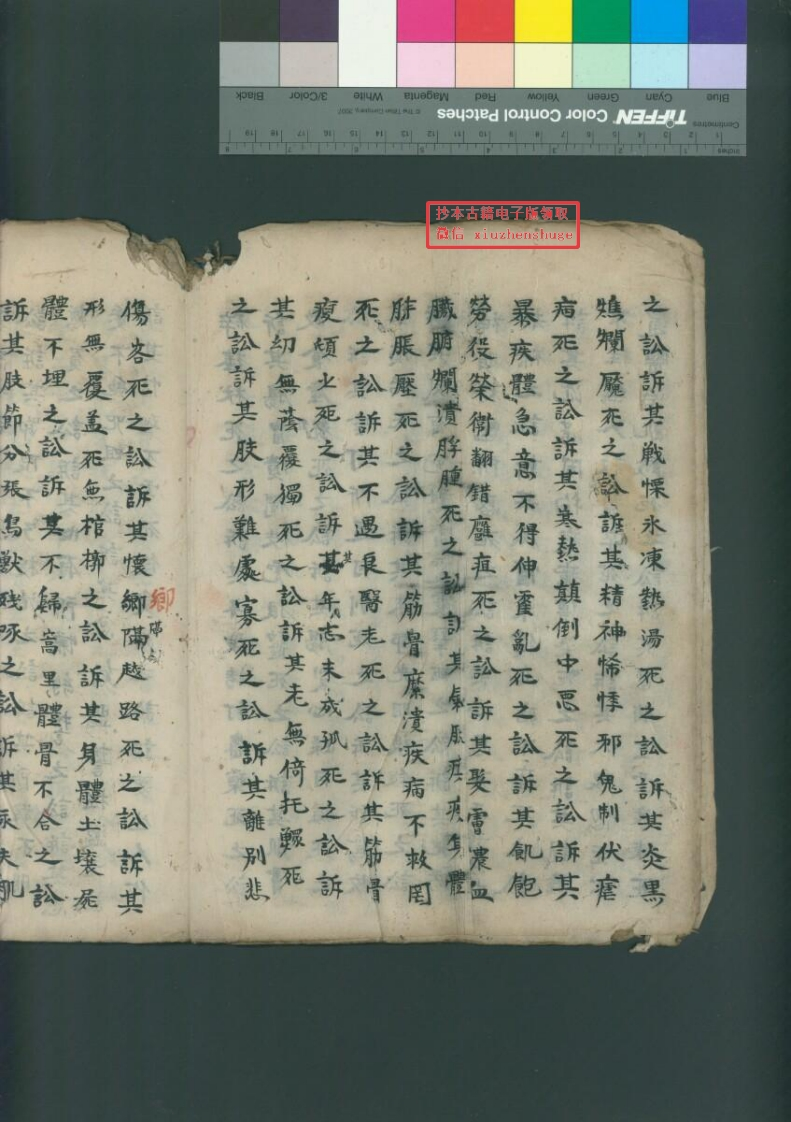 Blue Cyan Green Yellow Red Magenta White 3/Color Black
TIFFEN Color Control Patches
© The Tiffen Company, 2007
Centimetres
Inches
抄本古籍电子版领取
微信 xiuzhenshuge
之訟訴其戰慄氷凍熱湯死之訟訴其炎黒
爛魘死之訟訴其精神悕悸邪鬼制伏瘧
病死之訟訴其寒熱顛倒中悪死之訟訴其
暴疾體急意不得伸霍亂死之訟訴其飢飽
勞役榮衛翻錯癰疽死之訟訴其膿血
臟腑爛潰脬腫死之訟訴其疾身體
胮脹壓死之訟訴其筋骨糜潰疾病不救罔
死之訟訴其不遇良醫老死之訟訴其筋骨
之死之訟訴其年志未成孤死之訟訴
其幼無蔭覆獨死之訟訴其老無倚托鰥死
之訟訴其肢形難處寡死之訟訴其離別悲
傷客死之訟訴其懷鄉隔越路死之訟訴其
鄉
形無覆盖死無棺槨之訟訴其身體土壤屍
體不埋之訟訴其不歸嵩里體骨不合之訟
訴其肢節分張鳥獸残啄之訟訴其